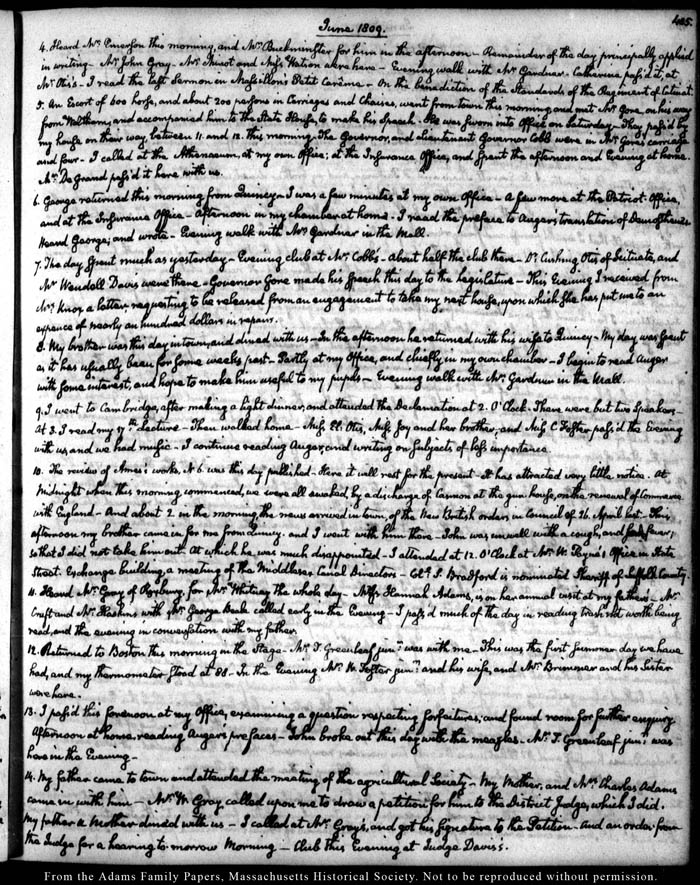 June 1809.
405.
4. Heard Mr. Emerson this morning, and Mr. Buckminster for him in the afternoon — Remainder of the day principally applied
in writing. Mr. John Gray — Mr. and Miss Watson were here — Evening walk with Mr. Gardner. Catharine pass'd it, at
Mr. Otis's — I read the last Sermon in Massillon's Petit Carême — On the benediction of the Standards of the Regiment of Catinat.
5. An Escort of 600 horse, and about 200 persons in Carriages and Chaises, went from town this morning and met Mr. Gore, on his way
from Waltham, and accompanied him to the State House, to make his Speech. He was sworn into Office on Saturday — They pass'd by
my house on their way, between 11. and 12. this morning. The Governor, and Lieutenant Governor Cobb were in Mr. Gore's carriage
and four — I called at the Athenaeum, at my own Office; at the Insurance Office, and spent the afternoon and Evening at home.
Mr. De Grand pass'd it here with us.
6. George returned this morning from Quincy — I was a few minutes at my own Office — A few more at the Patriot Office,
and at the Insurance Office — Afternoon in my chamber at home — I read the preface to Auger's translation of Demosthenes
Heard George; and wrote — Evening walk with Mr. Gardner in the Mall.
7. The day spent much as yesterday — Evening club at Mr. Cobb's — About half the club there — Dr. Cushing Otis of Scituate, and
Mr. Wendell Davis were there — Governor Gore made his speech this day to the Legislature — This Evening I received from
Mrs. Knox a letter, requesting to be released from an engagement to take my next house, upon which she has put me to an
expence of nearly an hundred dollars in repairs.
8. My brother was this day in town, and dined with us — In the afternoon he returned with his wife to Quincy — My day was spent
as it has usually been for some weeks past — Partly at my Office, and chiefly in my own chamber — I begin to read Auger
with some interest, and hope to make him useful to my pupils — Evening walk with Mr. Gardner in the Mall.
9. I went to Cambridge, after making a light dinner, and attended the Declamation at 2. O'Clock. There were but two Speakers —
At 3. I read my 17th. Lecture — Then walked home — Miss El. Otis, Miss Joy and her brother, and Miss C Foster pass'd the Evening
with us and we had music — I continue reading Auger, and writing on subjects of less importance.
10. The review of Ames's works. N. 6. was this day published. Here it will rest for the present — It has attracted very little notice — At
Midnight when this morning commenced, we were all awaked by a discharge of Cannon at the gun house, on the renewal of Commerce
with England — And about 2. in the morning, the news arrived in town, of the New British orders in Council of 26. April last — This
afternoon my brother came in for me from Quincy. and I went with him there — John was unwell with a cough, and fever;
so that I did not take him out. At which he was much disappointed — I attended at 12. O'Clock at Mr. W. Payne's Office in State
Street. Exchange building, a meeting of the Middlesex Canal Directors — Coll. S. Bradford is nominated Sheriff of Suffolk County.
11. Heard Mr. Gray of Roxbury. for Mr. Whitney the whole day — Miss Hannah Adams, is on her annual visit at my father's — Mr.
Craft and Mr. Haskins with Mr. George Beale called early in the Evening — I pass'd much of the day in reading travels not worth being
read, and the evening in conversation with my father.
12. Returned to Boston this morning in the Stage — Mr. T. Greenleaf junr. was with me — This was the first Summer day we have
had, and my thermometer stood at 88 — In the Evening Mr. W. Foster junr. and his wife, and Mr. Brimmer and his Sister
were here.
13. I pass'd this forenoon at my Office, examining a question respecting forfeitures; and found room for further enquiry
Afternoon at home, reading Auger's prefaces — John broke out this day with the measles — Mr. T. Greenleaf junr. was
here in the Evening —
14. My father came to town and attended the meeting of the agricultural Society — My Mother, and Mrs. Charles Adams
came in with him — Mr. W. Gray called upon me to draw a petition for him to the District Judge, which I did.
My father & Mother dined with us — I called at Mr. Gray's, and got his signature to the Petition — And an order from
the Judge for a hearing to-morrow Morning — Club this Evening at Judge Davis's.
From the Adams Family Papers, Massachusetts Historical Society. Not to be reproduced without permission.